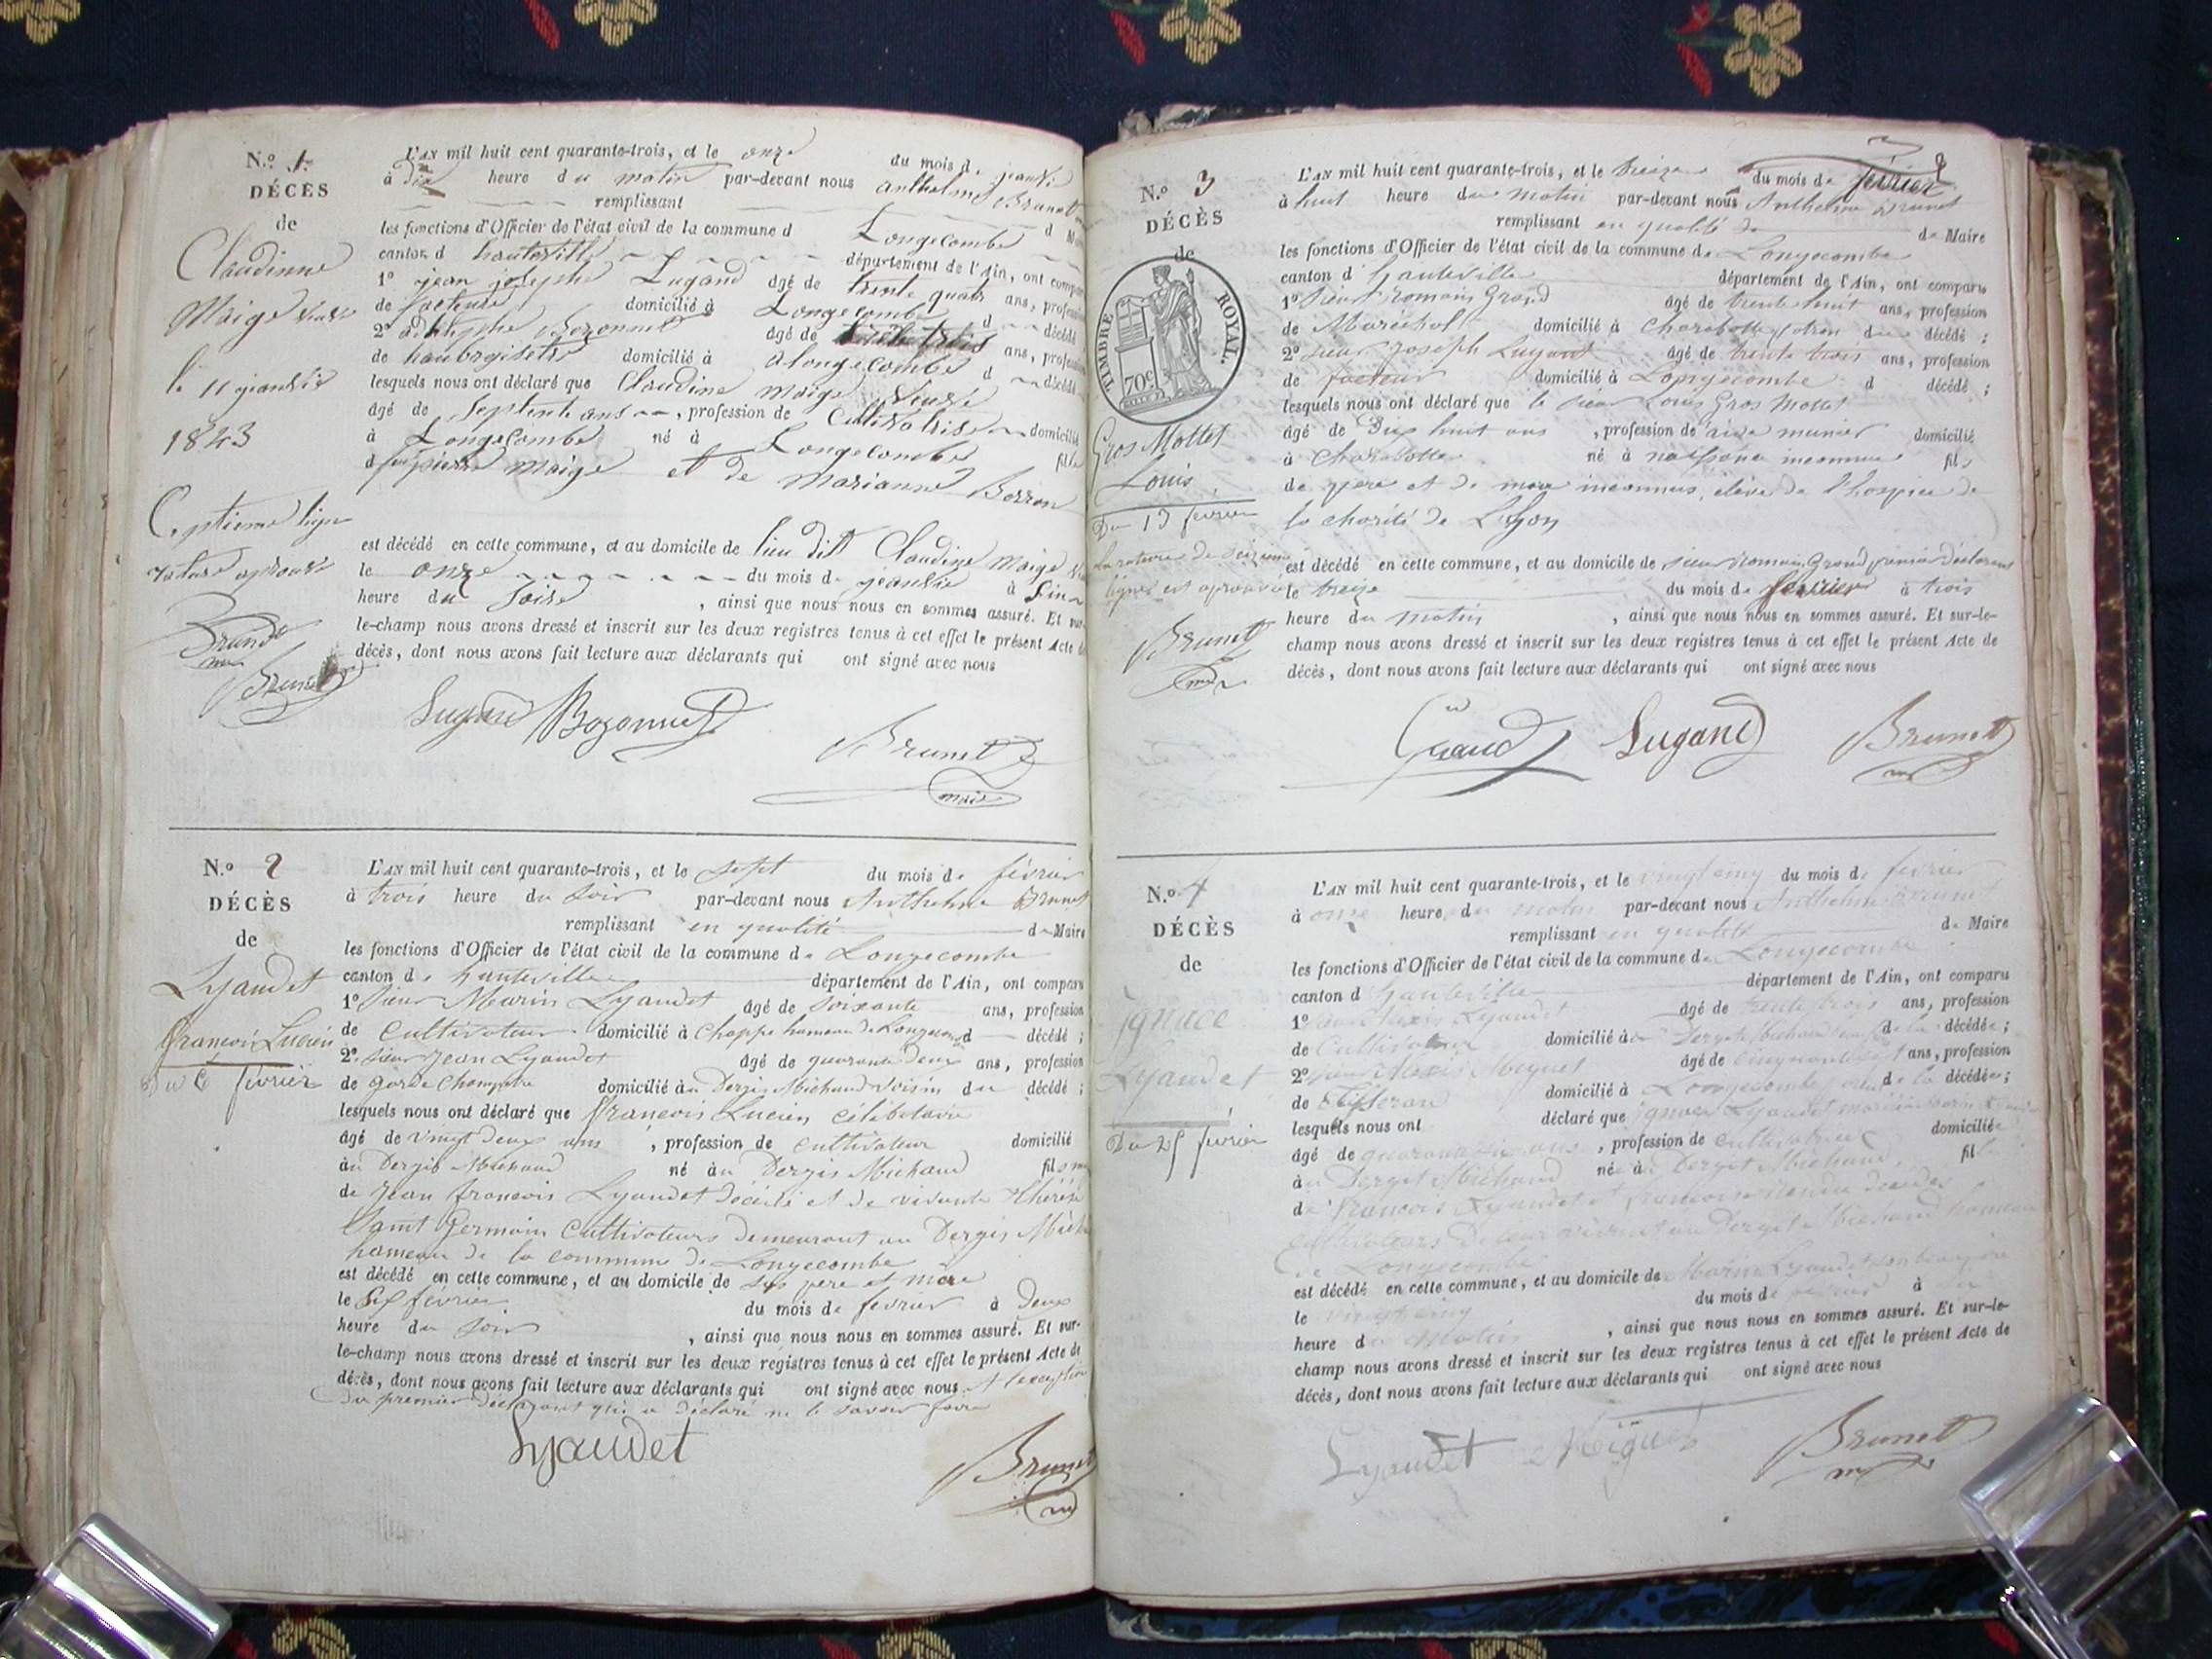 N.o 1.
DÉCÈS
de
Claudinne
Maige veuve
le 11 jeanvie
1843
L'AN mil huit cent quarante-trois, et le onze du mois d. jeanvie
à dix heure du matin par-devant nous anthelme Brunet
remplissant d Mai
les fonctions d'Officier de l'état civil de la commune d Longecombe
canton d hauteville département de l'Ain, ont compar
1o jean josephe Lugand agé de trente quatr ans, profession
de facteure domicilié à Longecombe d décédé
2o Bozonnet agé de ans, profession
de domicilié à alongecombe d décédé
lesquels nous ont déclaré que Claudine maige veuve
âgé de septente ans, profession de Cultivatrise domicilié
à Longecombe né à Longecombe fille
d feu pierre maige et de marianne Borron
Septieme lign
rature aprouve
Brunet
Brunet
est décédé en cette commune, et au domicile de lieu dit Claudine maige
le onze du mois d. jeanvie à sin
heure du soire, ainsi que nous nous en sommes assuré. Et sur-
le-champ nous avons dressé et inscrit sur les deux registres tenus à cet effet le présent Acte d
décès, dont nous avons fait lecture aux déclarants qui ont signé avec nous
Lugand Bozonnet
Brunet
maire
N.o 2
DÉCÈS
de
Lyaudet
françois Lucien
Du 6 février
L'AN mil huit cent quarante-trois, et le sept du mois de février
à trois heure du soir par-devant nous Anthelme Brunet
remplissant en qualité de Maire
les fonctions d'Officier de l'état civil de la commune de Longecombe
canton de hauteville département de l'Ain, ont comparu
1o Sieur Marin Lyaudet agé de soixante ans, profession
de Cultivateur domicilié à Chappe hameau de Longecombe d décédé ;
2o sieur Jean Lyaudet âgé de quarante deux ans, profession
de garde champetre domicilié au Dergis Michaud voisin du décédé ;
lesquels nous ont déclaré que françois Lucien célibataire
âgé de vingt deux ans, profession de cultivateur domicilié
au Dergis Michaud né au Dergis Michaud fils
de Jean françois Lyaudet décédé et de vivante Thérèse
Saint Germain Cultivateurs demeurant au Dergis Mich
hameau de la commune de Longecombe
est décédé en cette commune, et au domicile de ses père et mère
le six février du mois de février à Deux
heure du soir, ainsi que nous nous en sommes assuré. Et sur-
le-champ nous avons dressé et inscrit sur les deux registres tenus à cet effet le présent Acte de
décès, dont nous avons fait lecture aux déclarants qui ont signé avec nous A l'exception
du premier déclarant qui a déclaré ne le savoir faire
Lyaudet
Brunet
N.o 3
DÉCÈS
de
TIMBRE ROYAL.
70c
Gros Mottet
Louis
Du 13 février
La rature de seizieme
ligne est aprouvé
Brunet
L'AN mil huit cent quarante-trois, et le treize du mois de février
à huit heure du matin par-devant nous Anthelme Brunet
remplissant en qualité de de Maire
les fonctions d'Officier de l'état civil de la commune de Longecombe
canton d' hauteville département de l'Ain, ont comparu
1o Sieur Romain Grand âgé de trente huit ans, profession
de Maréchal domicilié à Charabotte du décédé ;
2o sieur Joseph Lugand âgé de trente trois ans, profession
de facteur domicilié à Longecombe d décédé ;
lesquels nous ont déclaré que le sieur Louis Gros Mottet
âgé de Dix huit ans, profession de aide munier domicilié
à Charabotte né à inconnue fils
de père et de mère inconnus, élève de l'hospice de
la charité de Lyon
est décédé en cette commune, et au domicile de sieur Romain Grand premier déclarant
le treize du mois de février à trois
heure du matin, ainsi que nous nous en sommes assuré. Et sur-le-
champ nous avons dressé et inscrit sur les deux registres tenus à cet effet le présent Acte de
décès, dont nous avons fait lecture aux déclarants qui ont signé avec nous
Grand Lugand Brunet
N.o 4
DÉCÈS
de
Ignace
Lyaudet
Du 25 février
L'AN mil huit cent quarante-trois, et le vingt cinq du mois de février
à onze heure du matin par-devant nous Anthelme Brunet
remplissant en qualité de Maire
les fonctions d'Officier de l'état civil de la commune de Longecombe
canton d hauteville département de l'Ain, ont comparu
1o Lyaudet âgé de trente trois ans, profession
de Cultivateur domicilié au Dergit Michaud de la décédée ;
2o sieur Alexis Miguet âgé de cinquante sept ans, profession
de Tisseran domicilié à Longecombe de la décédée ;
lesquels nous ont déclaré que Ignace Lyaudet
âgé de quarante ans, profession de cultivatrice domiciliée
au Dergit Michaud née au Dergit Michaud fille
de françois Lyaudet et françoise décédés
cultivateurs De leur vivant au Dergit Michaud hameau
de Longecombe
est décédé en cette commune, et au domicile de Marin Lyaudet son beau père
le vingt cinq du mois de février à
heure du matin, ainsi que nous nous en sommes assuré. Et sur-le-
champ nous avons dressé et inscrit sur les deux registres tenus à cet effet le présent Acte de
décès, dont nous avons fait lecture aux déclarants qui ont signé avec nous
Lyaudet Miguet Brunet